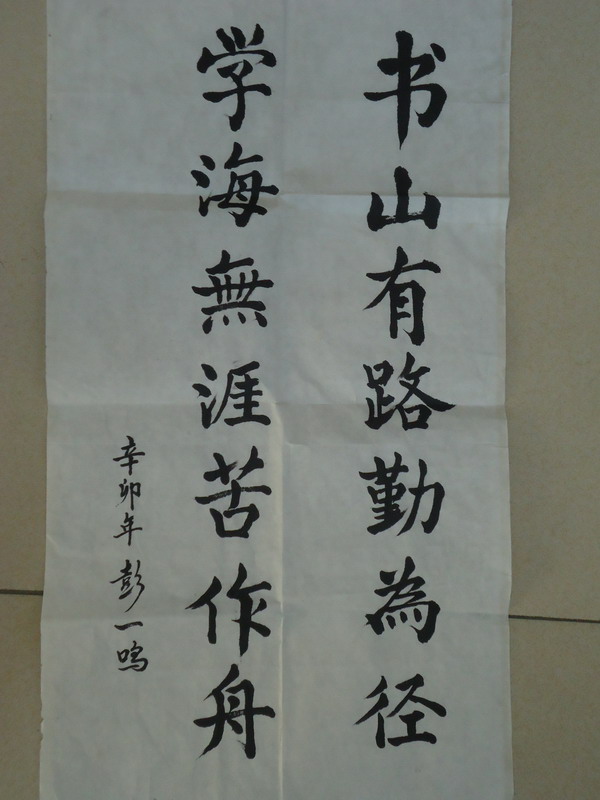 书山有路勤為径
学海無涯苦作舟
辛卯年 彭一鸣